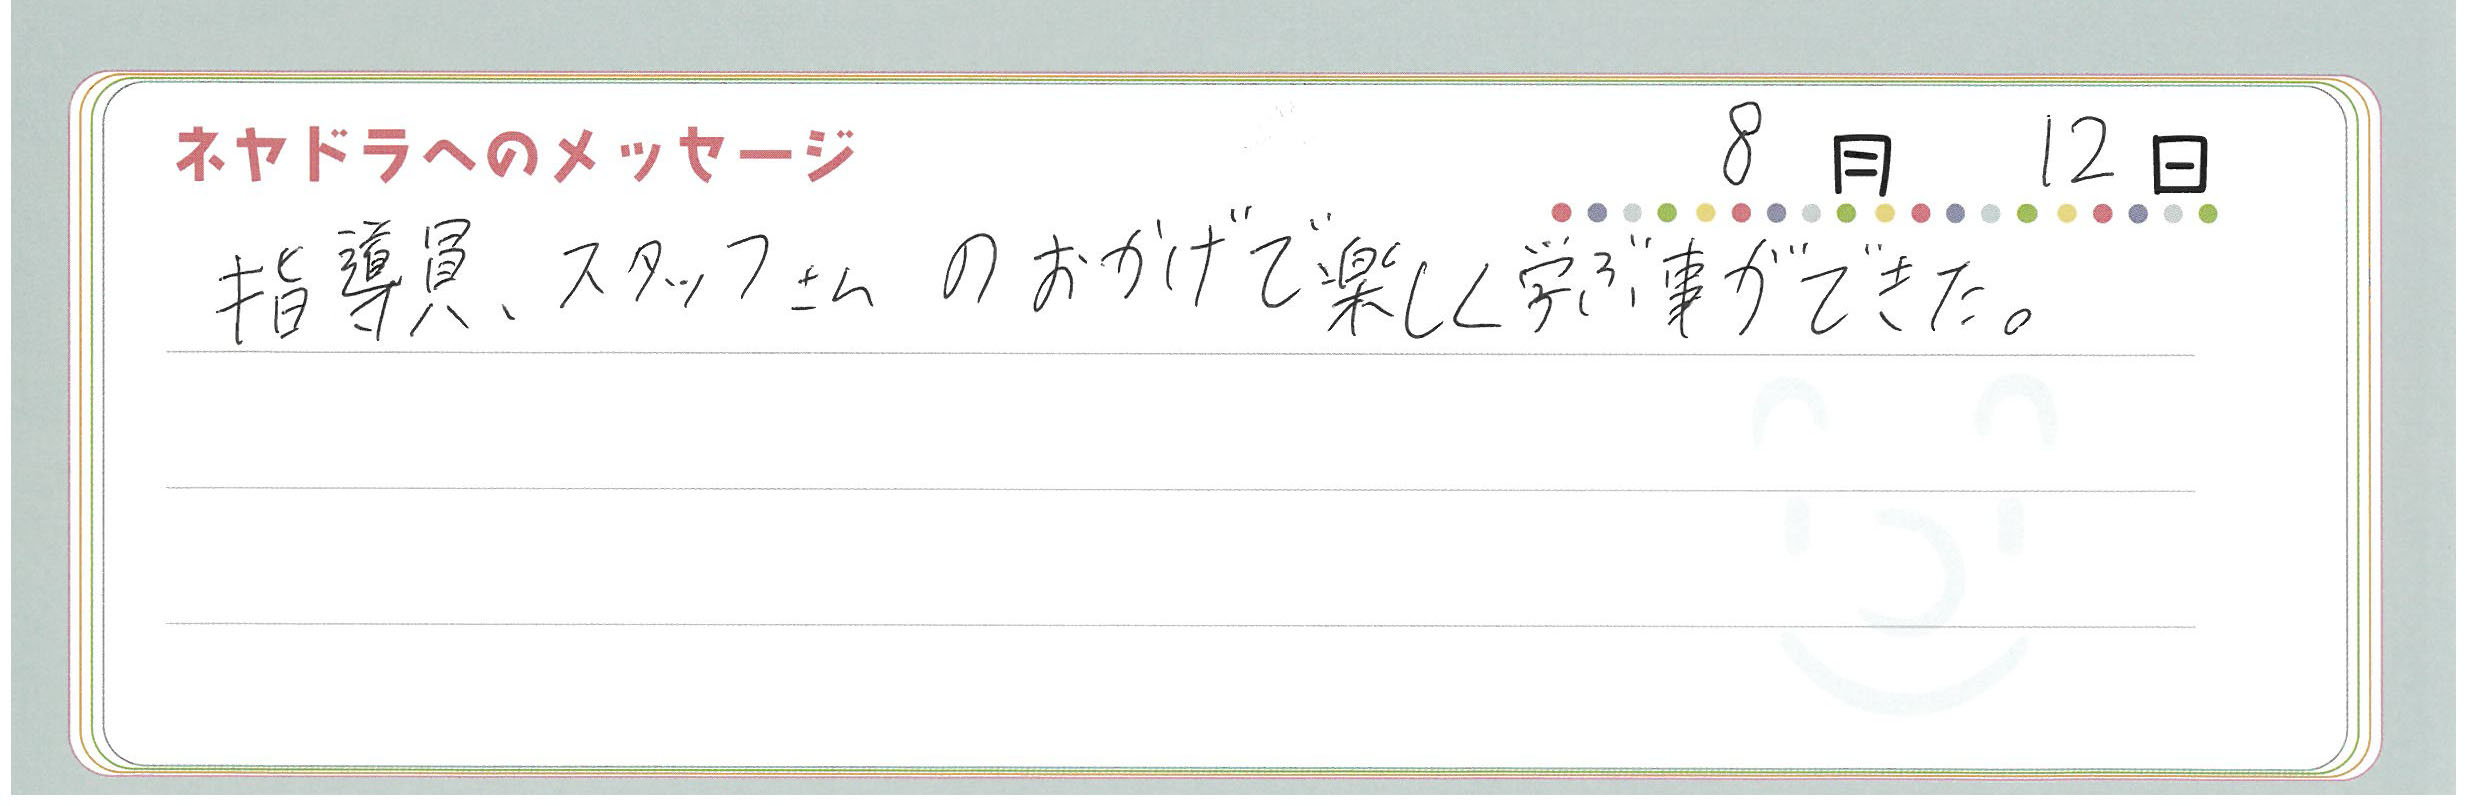 ネヤドラへのメッセージ
8月 12日
指導員、スタッフさんのおかげで楽しく学ぶ事ができた。